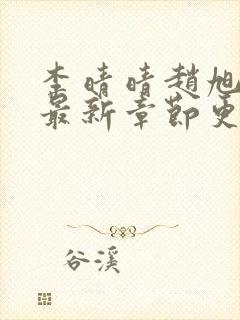 李晴晴趙旭
最新章節更
谷溪